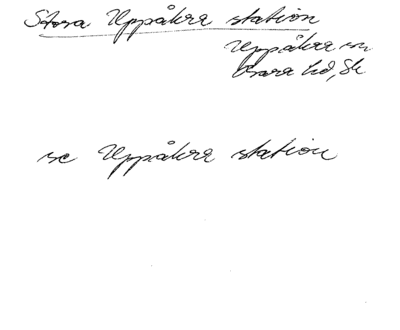 Stora Uppåkra station
Uppåkra sn
Bara hd, Sk
se Uppåkra station